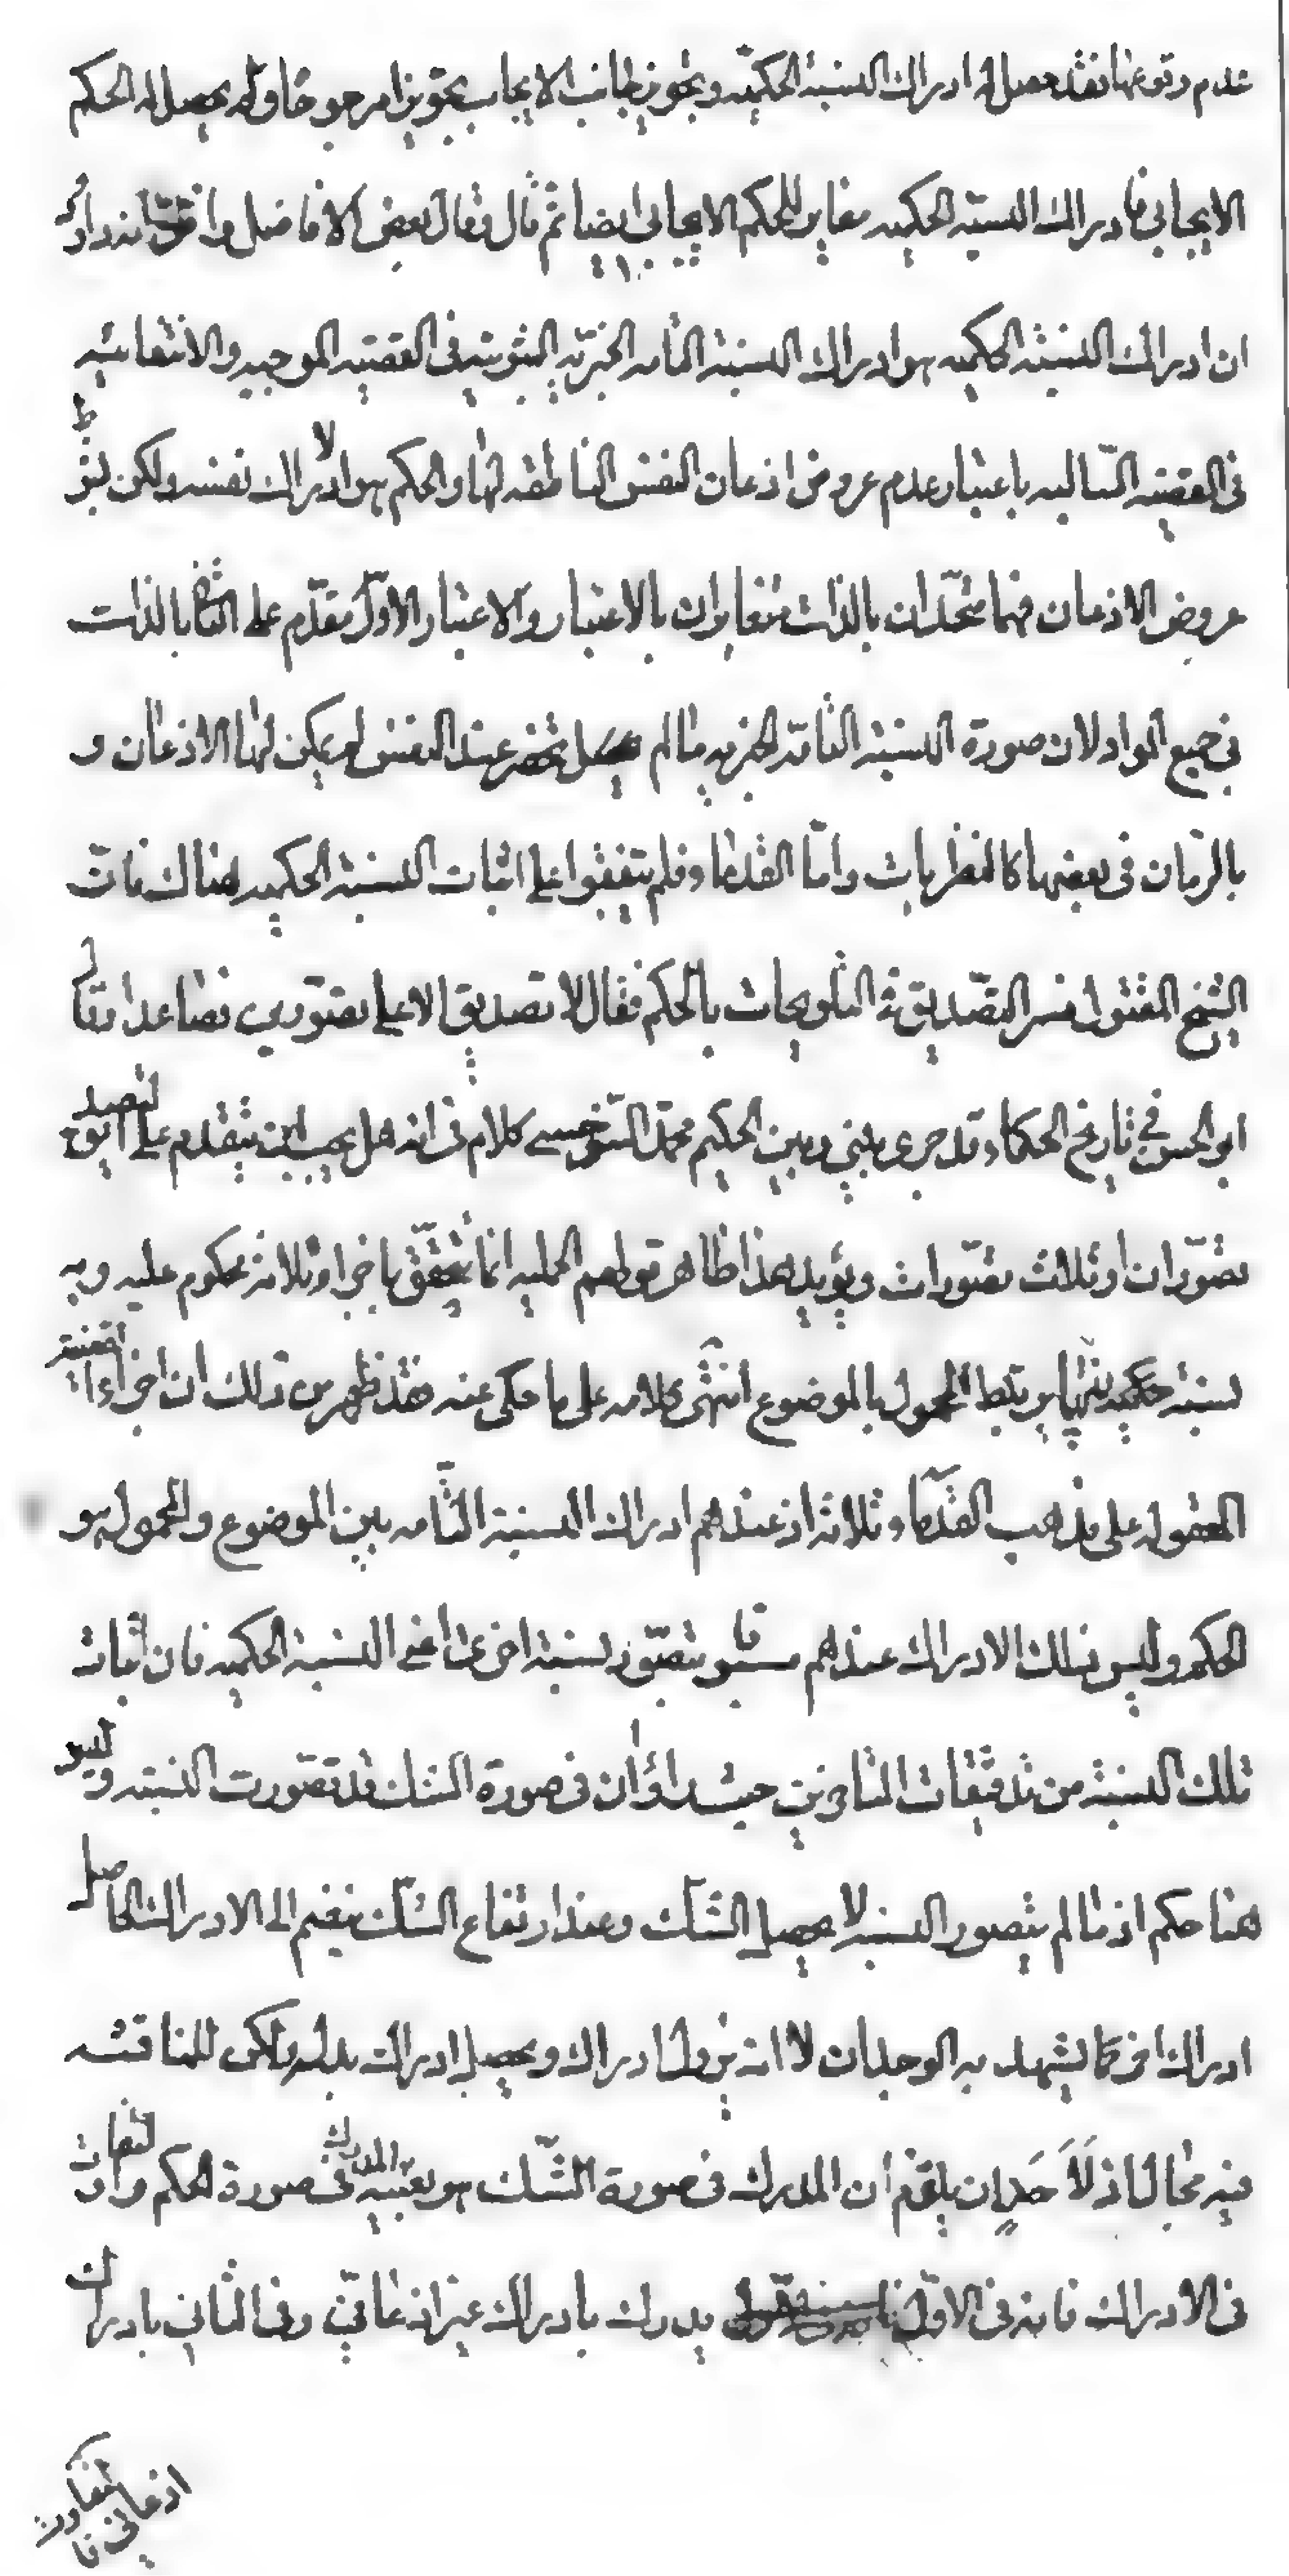 عدم وقوعها فقد حصل له ادراك النسبة الحكمية وتجويز جانب الايجاب تجويزا مرجوحا ولم يحصل له الحكم
الايجابي فادراك النسبة الحكمية مغاير للحكم الايجابي ايضا ثم قال وقال بعض الافاضل
ان ادراك النسبة الحكمية هو ادراك النسبة التامة الخبرية الثبوتية في القضية الموجبة والانتفائية
في القضية السالبة باعتبار عدم عروض اذعان النفس الناطقة لها والحكم هو الادراك نفسه ولكن بشرط
عروض الاذعان فهما متحدان بالذات متغايران بالاعتبار والاعتبار الاول مقدم على الثاني بالذات
في جميع المواد لان صورة النسبة التامة الخبرية ما لم يحصل عند النفس لم يمكن لها الاذعان و
بالزمان في بعضها كالنظريات واما القدماء فلم يتفقوا على اثبات النسبة الحكمية هناك فان
الشيخ المقتول فسر التصديق في التلويحات بالحكم فقال لا تصديق الا على تصورين فصاعدا وقال
ابو الحسن في تاريخ الحكماء قد جرى بيني وبين الحكيم محمد السرخسي كلام في انه هل يجب ان يتقدم على التصديق
تصوران او ثلاث تصورات ويؤيد هذا ظاهر قولهم الحملية انما تتحقق باجزاء ثلاثة محكوم عليه وبه
نسبة حكمية بها يرتبط المحمول بالموضوع انتهى كلامه على ما حكى عنه فقد ظهر من ذلك ان اجزاء القضية
المعقولة على مذهب القدماء ثلاثة اذ عندهم ادراك النسبة التامة بين الموضوع والمحمول هو
الحكم وليس ذلك الادراك عندهم مسبوقا بتصور نسبة اخرى اعني النسبة الحكمية فان اثبات
تلك النسبة من تدقيقات المتاخرين حيث راوا ان في صورة الشك قد تصورت النسبة وليس
هنا حكم اذ ما لم يتصور النسبة لا يحصل الشك وعند ارتفاع الشك ينضم الى الادراك الحاصل
ادراك اخر كما يشهد به الوجدان لا انه يزول ادراك ويحصل ادراك بدله لكن للمناقشة
فيه مجال اذ لاحد ان يلتزم ان المدرك في صورة الشك هو بعينه المدرك في صورة الحكم والتفاوت
في الادراك فانه في الاول يدرك بادراك غير اذعاني وفي الثاني بادراك
اذعاني